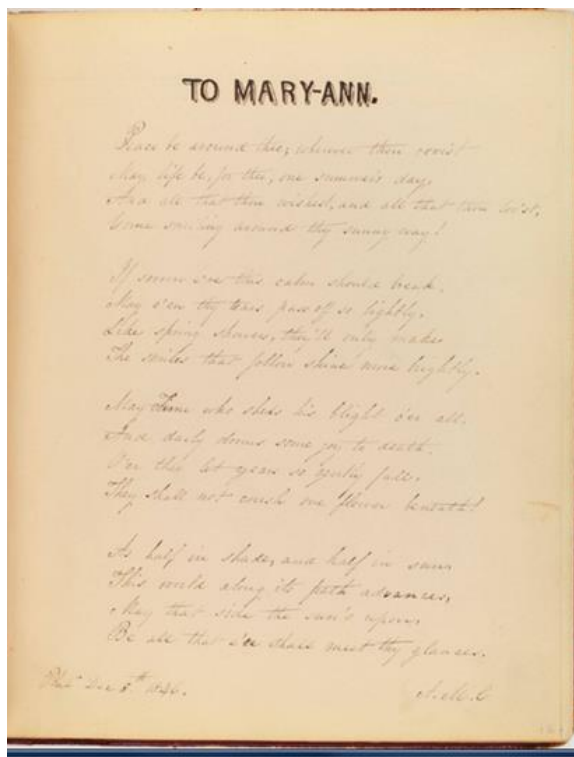 TO MARY-ANN.
Peace be around thee, wherever thou rov'st
May life be, for thee, one summer's day,
And all that thou wishest, and all that thou lov'st,
Come smiling around thy sunny way!
If sorrow e'er this calm should break,
May e'en thy tears pass off so lightly,
Like spring showers, they'll only make,
The smiles that follow shine more brightly.
May Time who sheds his blight o'er all,
And daily dooms some joy to death,
O'er thee let years so gently fall,
They shall not crush one flower beneath!
As half in shade, and half in sun,
This world along its path advances,
May that side the sun's upon,
Be all that e'er shall meet thy glances.
Dec 5th 1846.